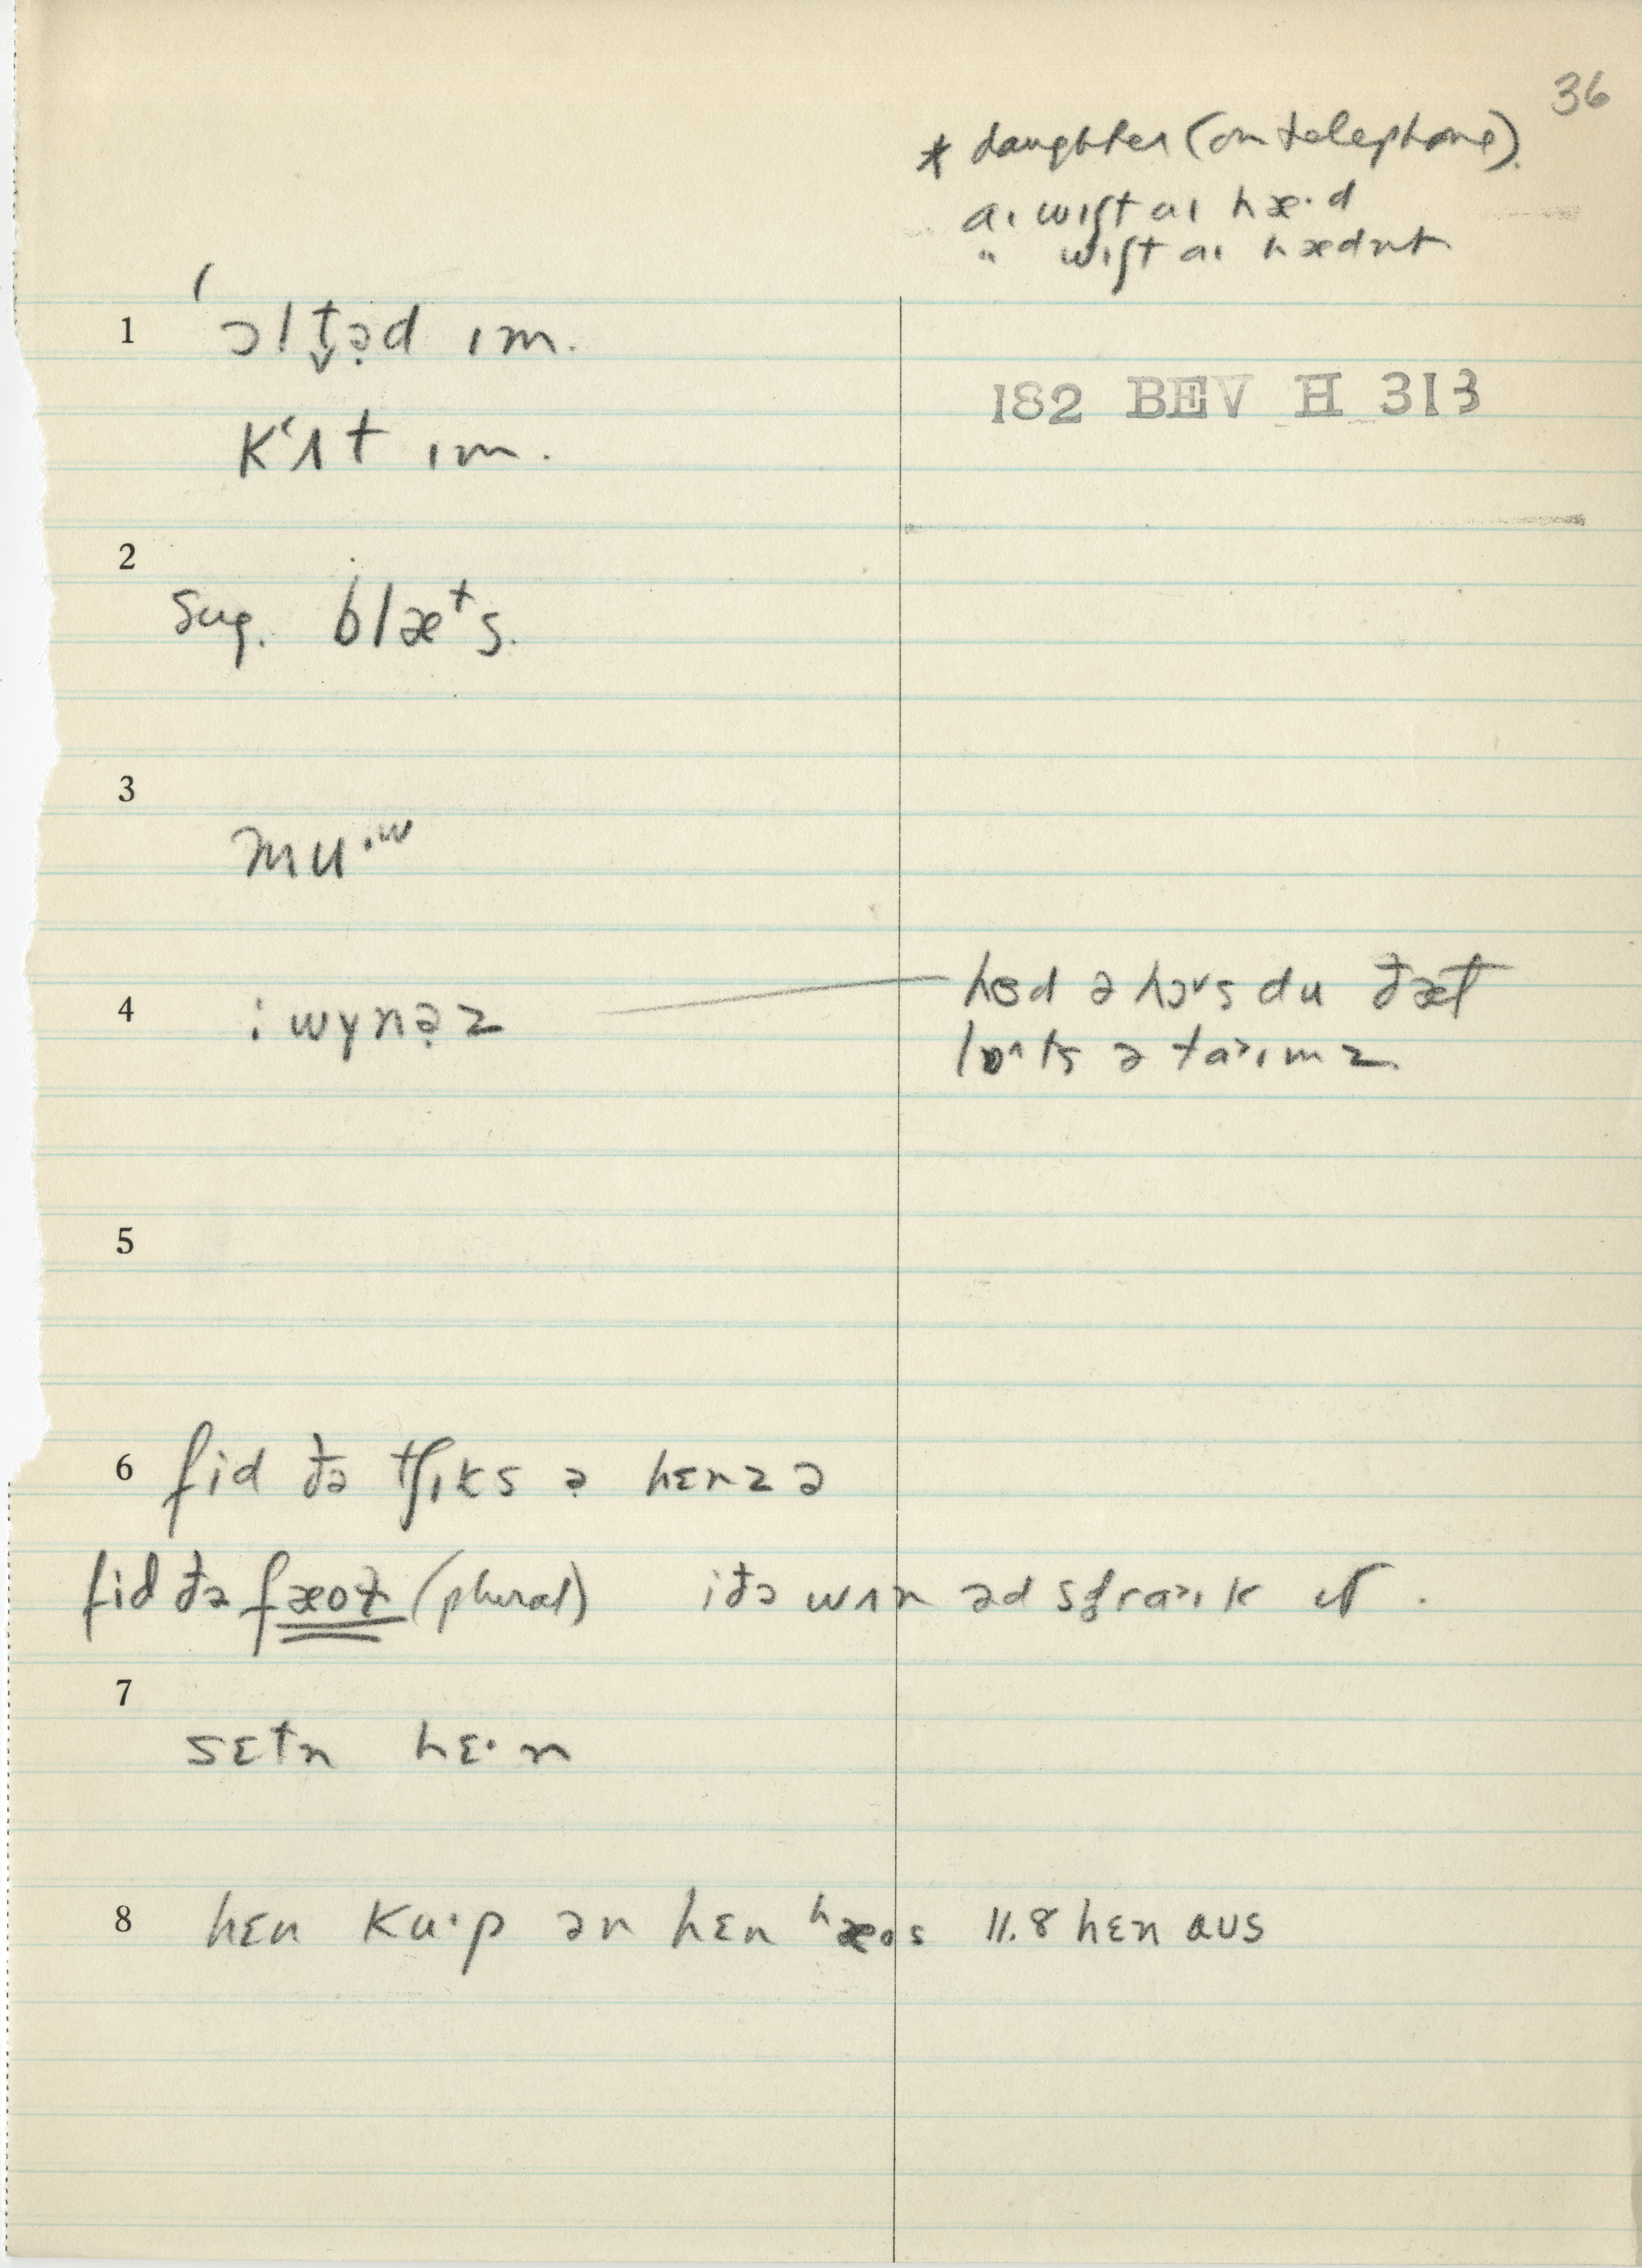 36
* daughter (on telephone).
aɪ wɪʃt aɪ hæ·d
" wɪʃt aɪ hædnt
1 ˈɔltə̣d ɪm.
182 BEV H 313
kʻʌt ɪm.
2
sug. blæᵗs.
3
mu·ʷ
4 : wynə̣z
hɛd ə hɔvs du ðæt
lɒ^ts ə ta>ɪmz
5
6 fid ðə tʃɪks ə hɛnz ə
fid ðə fæoɫ (plural) iðə wʌn əd sfra>ɪk ɪt.
7
sɛtn hɛ·n
8 hɛn ku·p ən hɛn ʰæos 11.8 hɛn aus